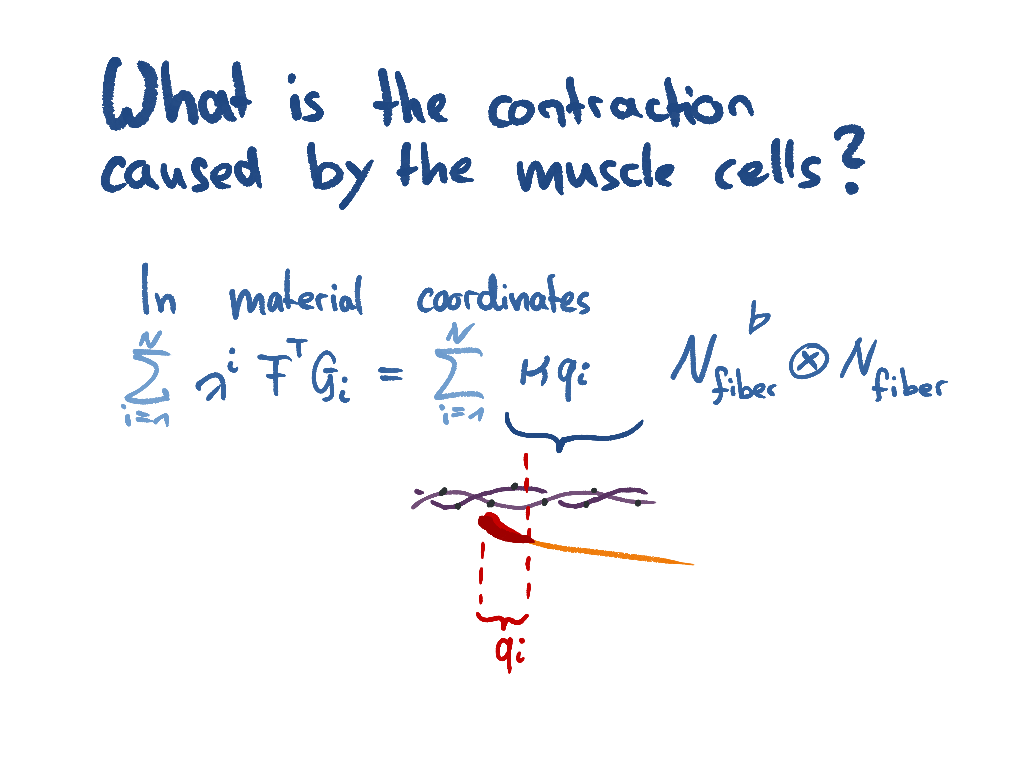 What is the contraction
caused by the muscle cells?
In material coordinates
N N b
∑ λⁱ Fᵀ Gᵢ = ∑ κ qᵢ N fiber ⊗ N fiber
i=1 i=1
qᵢ